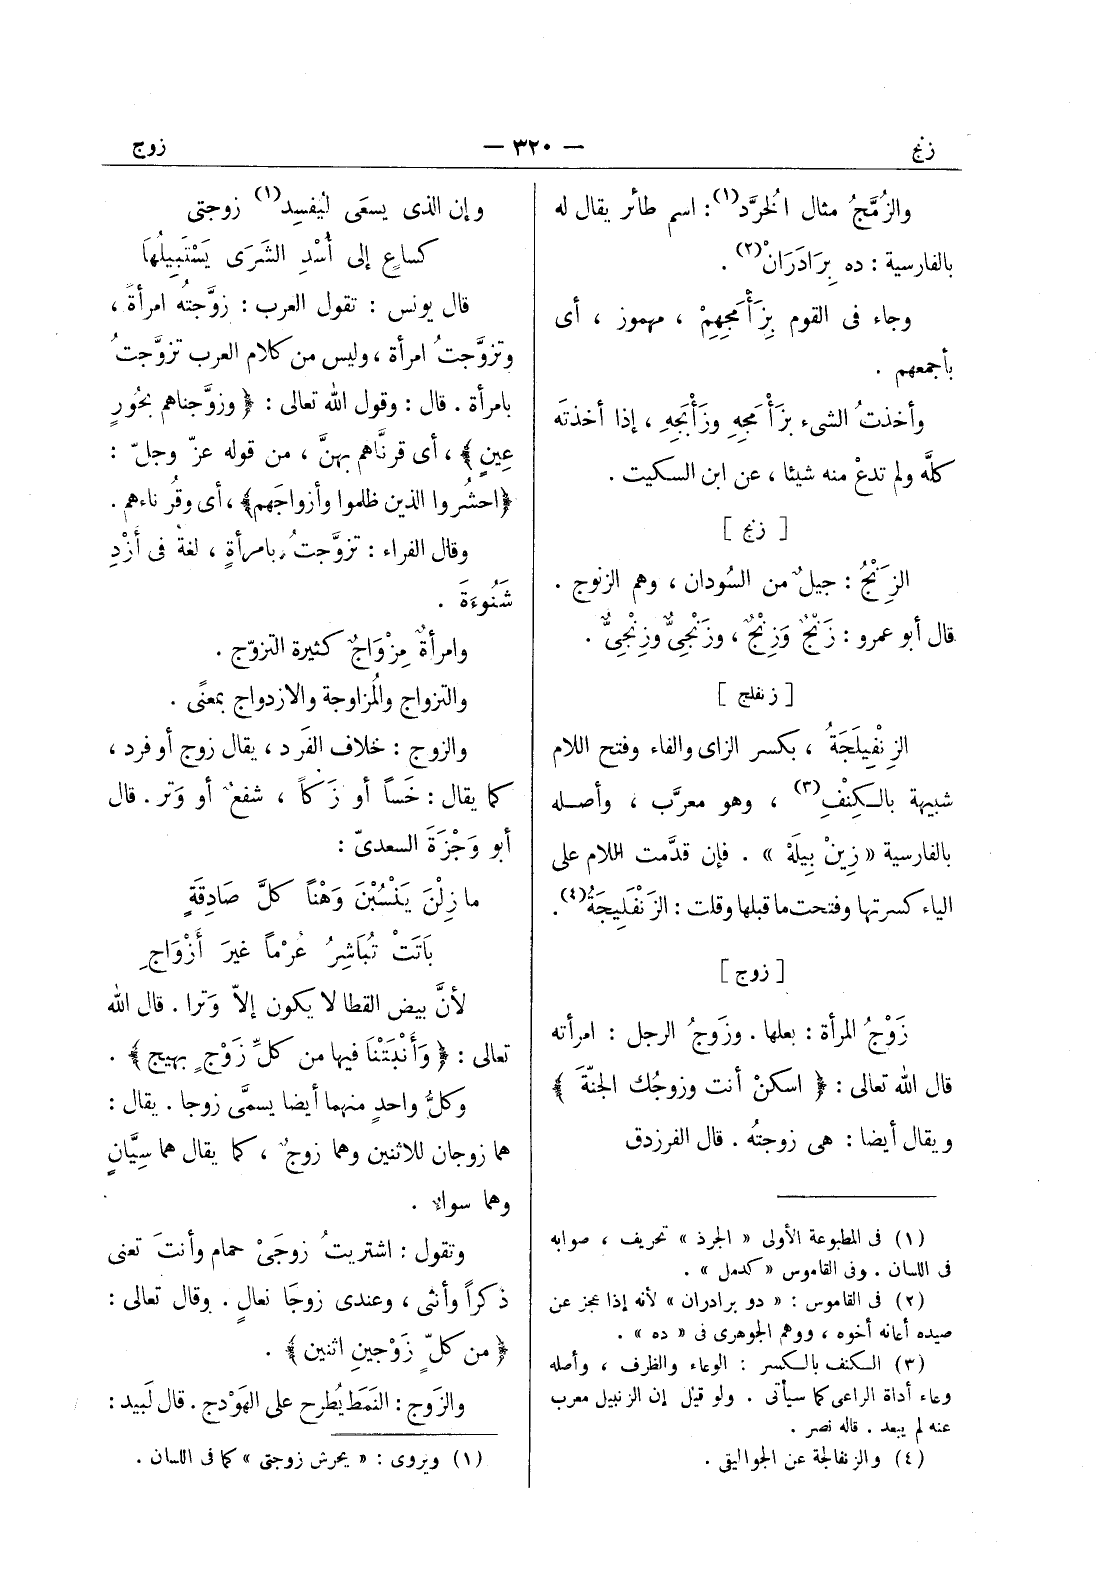 زنج
— ٣٢٠ —
زوج
والزُمَّجُ مثال الخُرَّد(١) : اسم طائر يقال له
بالفارسية : ده بِرَادَرَانْ(٢) .
وجاء فى القوم بِزَأْمَجِهِمْ ، مهموز ، أى
بأجمعهم .
وأخذتُ الشىء بِزَأْمَجِهِ وزَأْبَجِهِ ، إذا أخذتَه
كلَّه ولم تدعْ منه شيئا ، عن ابن السكيت .
[ زنج ]
الزَنْجُ : جيلٌ من السُودان ، وهم الزنوج .
قال أبو عمرو : زَنْجٌ وَزِنْجٌ ، وزَنْجِىٌّ وزِنْجِىٌّ .
[ زنفلج ]
الزِنْفِيلَجَةُ ، بكسر الزاى والفاء وفتح اللام
شبيهة بالكِنْفِ(٣) ، وهو معرَّب ، وأصله
بالفارسية « زِينْ بِيلَهْ » . فإن قدَّمت اللام على
الياء كسرتها وفتحت ما قبلها وقلت : الزَنْفَلِيجَةُ(٤) .
[ زوج ]
زَوْجُ المرأة : بعلها . وزَوجُ الرجل : امرأته
قال الله تعالى : ﴿ اسكنْ أنت وزوجُك الجنّةَ ﴾
ويقال أيضا : هى زوجتُه . قال الفرزدق
(١) فى المطبوعة الأولى « الجرذ » تحريف ، صوابه
فى اللسان . وفى القاموس « كدمل » .
(٢) فى القاموس : « دو برادران » لأنه إذا عجز عن
صيده أعانه أخوه ، ووهم الجوهرى فى « ده » .
(٣) الكنف بالكسر : الوعاء والظرف ، وأصله
وعاء أداة الراعى كما سيأتى . ولو قيل إن الزنبيل معرب
عنه لم يبعد . قاله نصر .
(٤) والزنفالجة عن الجواليقى .
وإن الذى يسعَى ليُفسِد(١) زوجتى
كساعٍ إلى أُسْدِ الشَرَى يَسْتَبِيلُهَا
قال يونس : تقول العرب : زوَّجتُه امرأةً ،
وتزوَّجتُ امرأة ، وليس من كلام العرب تزوَّجتُ
بامرأة . قال : وقول الله تعالى : ﴿ وزوَّجناهم بحُورٍ
عِينٍ ﴾ ، أى قرنَّاهم بهنَّ ، من قوله عزّ وجلّ :
﴿احشُروا الذين ظلموا وأزواجَهم﴾ ، أى وقُرناءهم .
وقال الفراء : تزوَّجتُ بامرأةٍ ، لغةٌ فى أَزْدِ
شَنُوءَةَ .
وامرأةٌ مِزْوَاجٌ كثيرة التزوّج .
والتزواج والمُزاوجة والازدواج بمعنًى .
والزوج : خلاف الفَرد ، يقال زوج أو فرد ،
كما يقال : خَساً أو زَكاً ، شفعٌ أو وَتر . قال
أبو وَجْزَةَ السعدىّ :
ما زِلْنَ يَنْسُبْنَ وَهْناً كلَّ صَادِقَةٍ
بَاتَتْ تُبَاشِرُ عُرْماً غيرَ أَزْوَاجِ
لأنَّ بيض القطا لا يكون إلاّ وَترا . قال الله
تعالى : ﴿ وَأَنْبَتْنَا فيها من كلِّ زَوْجٍ بهيج ﴾ .
وكلُّ واحدٍ منهما أيضا يسمَّى زوجا . يقال :
هما زوجان للاثنين وهما زوجٌ ، كما يقال هما سِيَّانِ
وهما سواء .
وتقول : اشتريتُ زوجَىْ حمام وأنتَ تعنى
ذكراً وأنثى ، وعندى زوجَا نعال . وقال تعالى :
﴿ من كلٍّ زَوْجينِ اثنين ﴾ .
والزَوج : النَمَط يُطرح على الهَوْدج . قال لَبيد :
(١) ويروى : « يحرش زوجتى » كما فى اللسان .